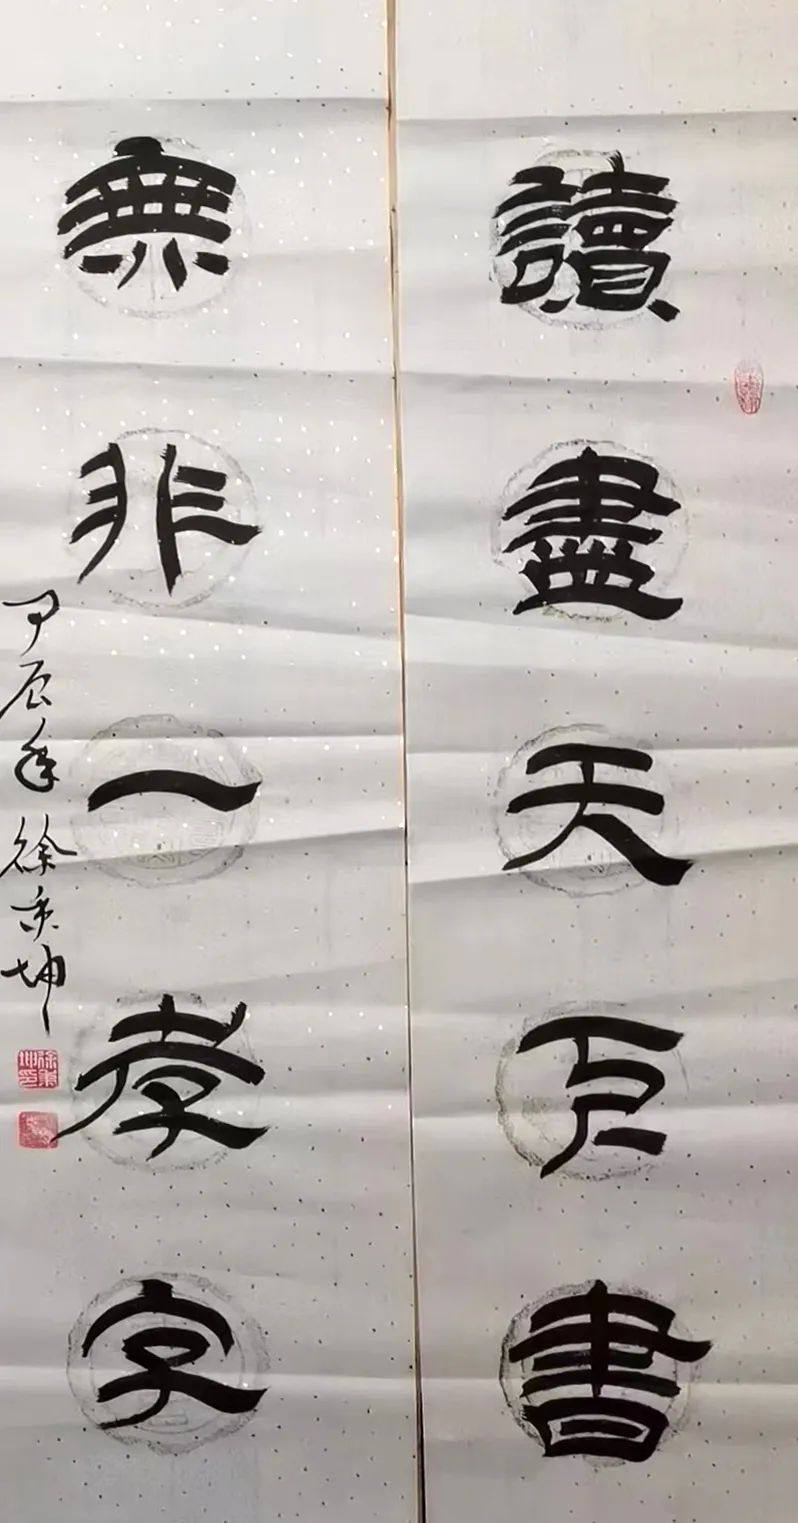 讀盡天下書
無非一孝字
甲辰年徐秉坤
徐秉坤印